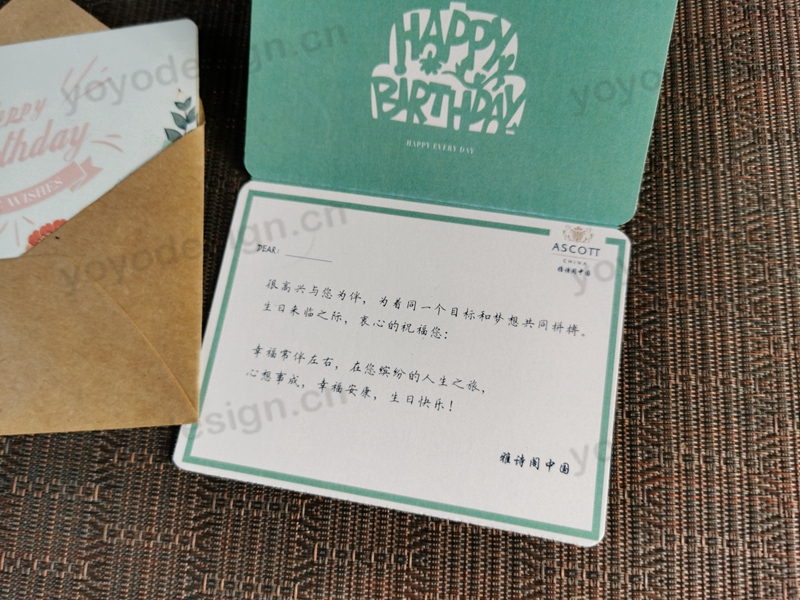 HAPPY
BIRTHDAY
HAPPY EVERY DAY
Happy
Birthday
WISHES
ASCOTT
CHINA
雅诗阁中国
DEAR:
很高兴与您为伴，为着同一个目标和梦想共同拼搏。
生日来临之际，衷心的祝福您：
幸福常伴左右，在您缤纷的人生之旅，
心想事成，幸福安康，生日快乐！
雅诗阁中国
yoyodesign.cn
yoyodesign.cn